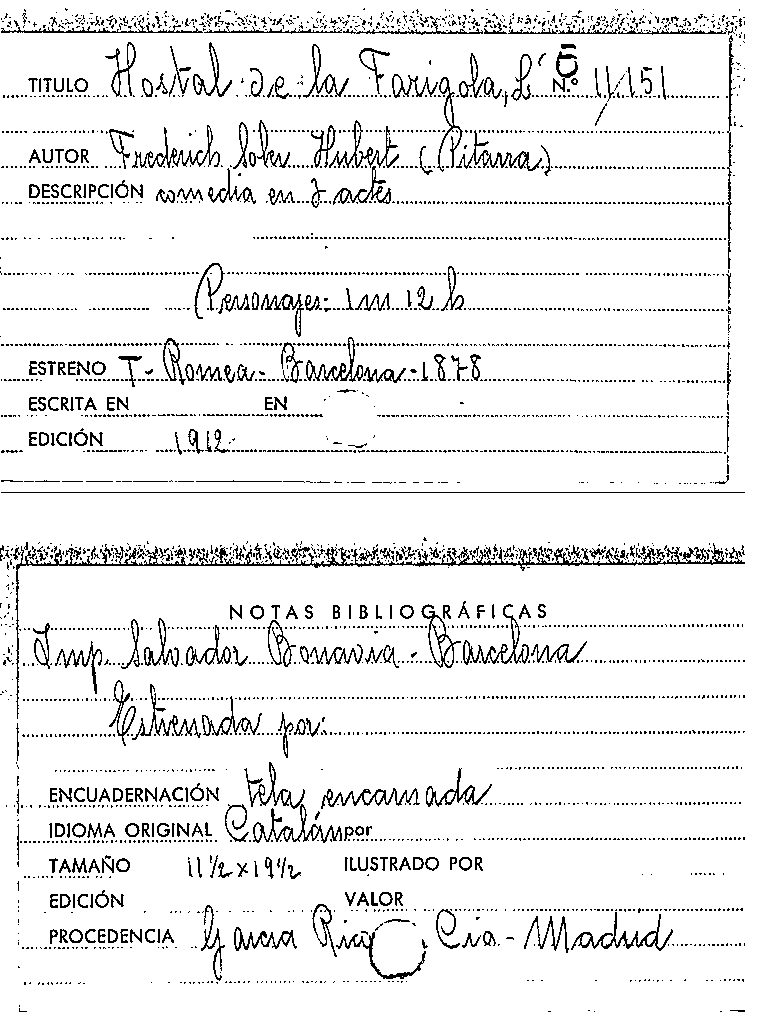 TITULO Hostal de la Farigola, L' N.º 11/151
AUTOR Frederich Soler Hubert (Pitarra)
DESCRIPCIÓN comedia en 3 actes
Personajes: 1 m 12 h
ESTRENO T- Romea- Barcelona-1878
ESCRITA EN EN
EDICIÓN 1912-
NOTAS BIBLIOGRÁFICAS
Imp. Salvador Bonavia- Barcelona
Estrenada por:
ENCUADERNACIÓN tela encarnada
IDIOMA ORIGINAL Catalán por
TAMAÑO 11 1/2 x 19 1/2 ILUSTRADO POR
EDICIÓN VALOR
PROCEDENCIA Garcia Rico Cia- Madrid